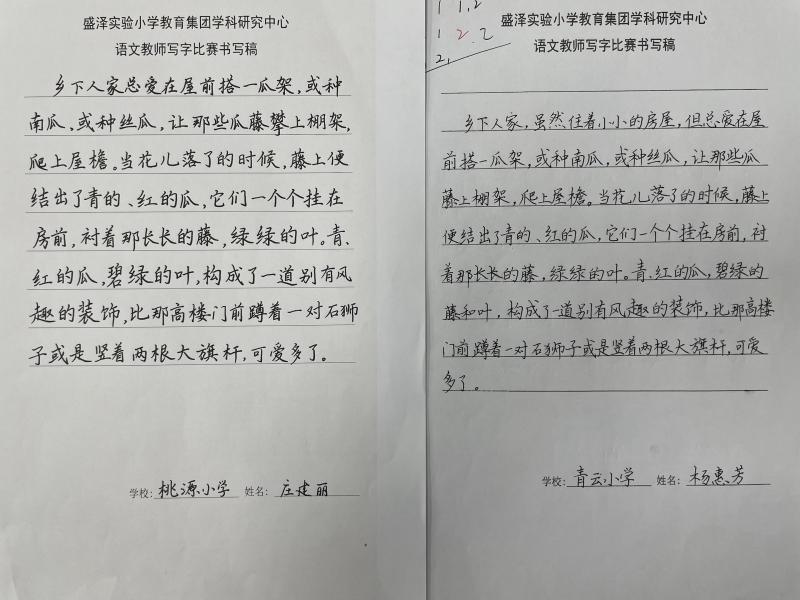 盛泽实验小学教育集团学科研究中心
语文教师写字比赛书写稿
乡下人家总爱在屋前搭一瓜架,或种
南瓜、或种丝瓜,让那些瓜藤攀上棚架,
爬上屋檐。当花儿落了的时候,藤上便
结出了青的、红的瓜,它们一个个挂在
房前,衬着那长长的藤,绿绿的叶。青、
红的瓜,碧绿的叶,构成了一道别有风
趣的装饰,比那高楼门前蹲着一对石狮
子或是竖着两根大旗杆,可爱多了。
学校:桃源小学 姓名:庄建丽
1 1.2
1 2.2
2.
盛泽实验小学教育集团学科研究中心
语文教师写字比赛书写稿
乡下人家,虽然住着小小的房屋,但总爱在屋
前搭一瓜架,或种南瓜,或种丝瓜,让那些瓜
藤上棚架,爬上屋檐。当花儿落了的时候,藤上
便结出了青的、红的瓜,它们一个个挂在房前,衬
着那长长的藤,绿绿的叶。青、红的瓜,碧绿的
藤和叶,构成了一道别有风趣的装饰,比那高楼
门前蹲着一对石狮子或是竖着两根大旗杆,可爱
多了。
学校:青云小学 姓名:杨惠芳